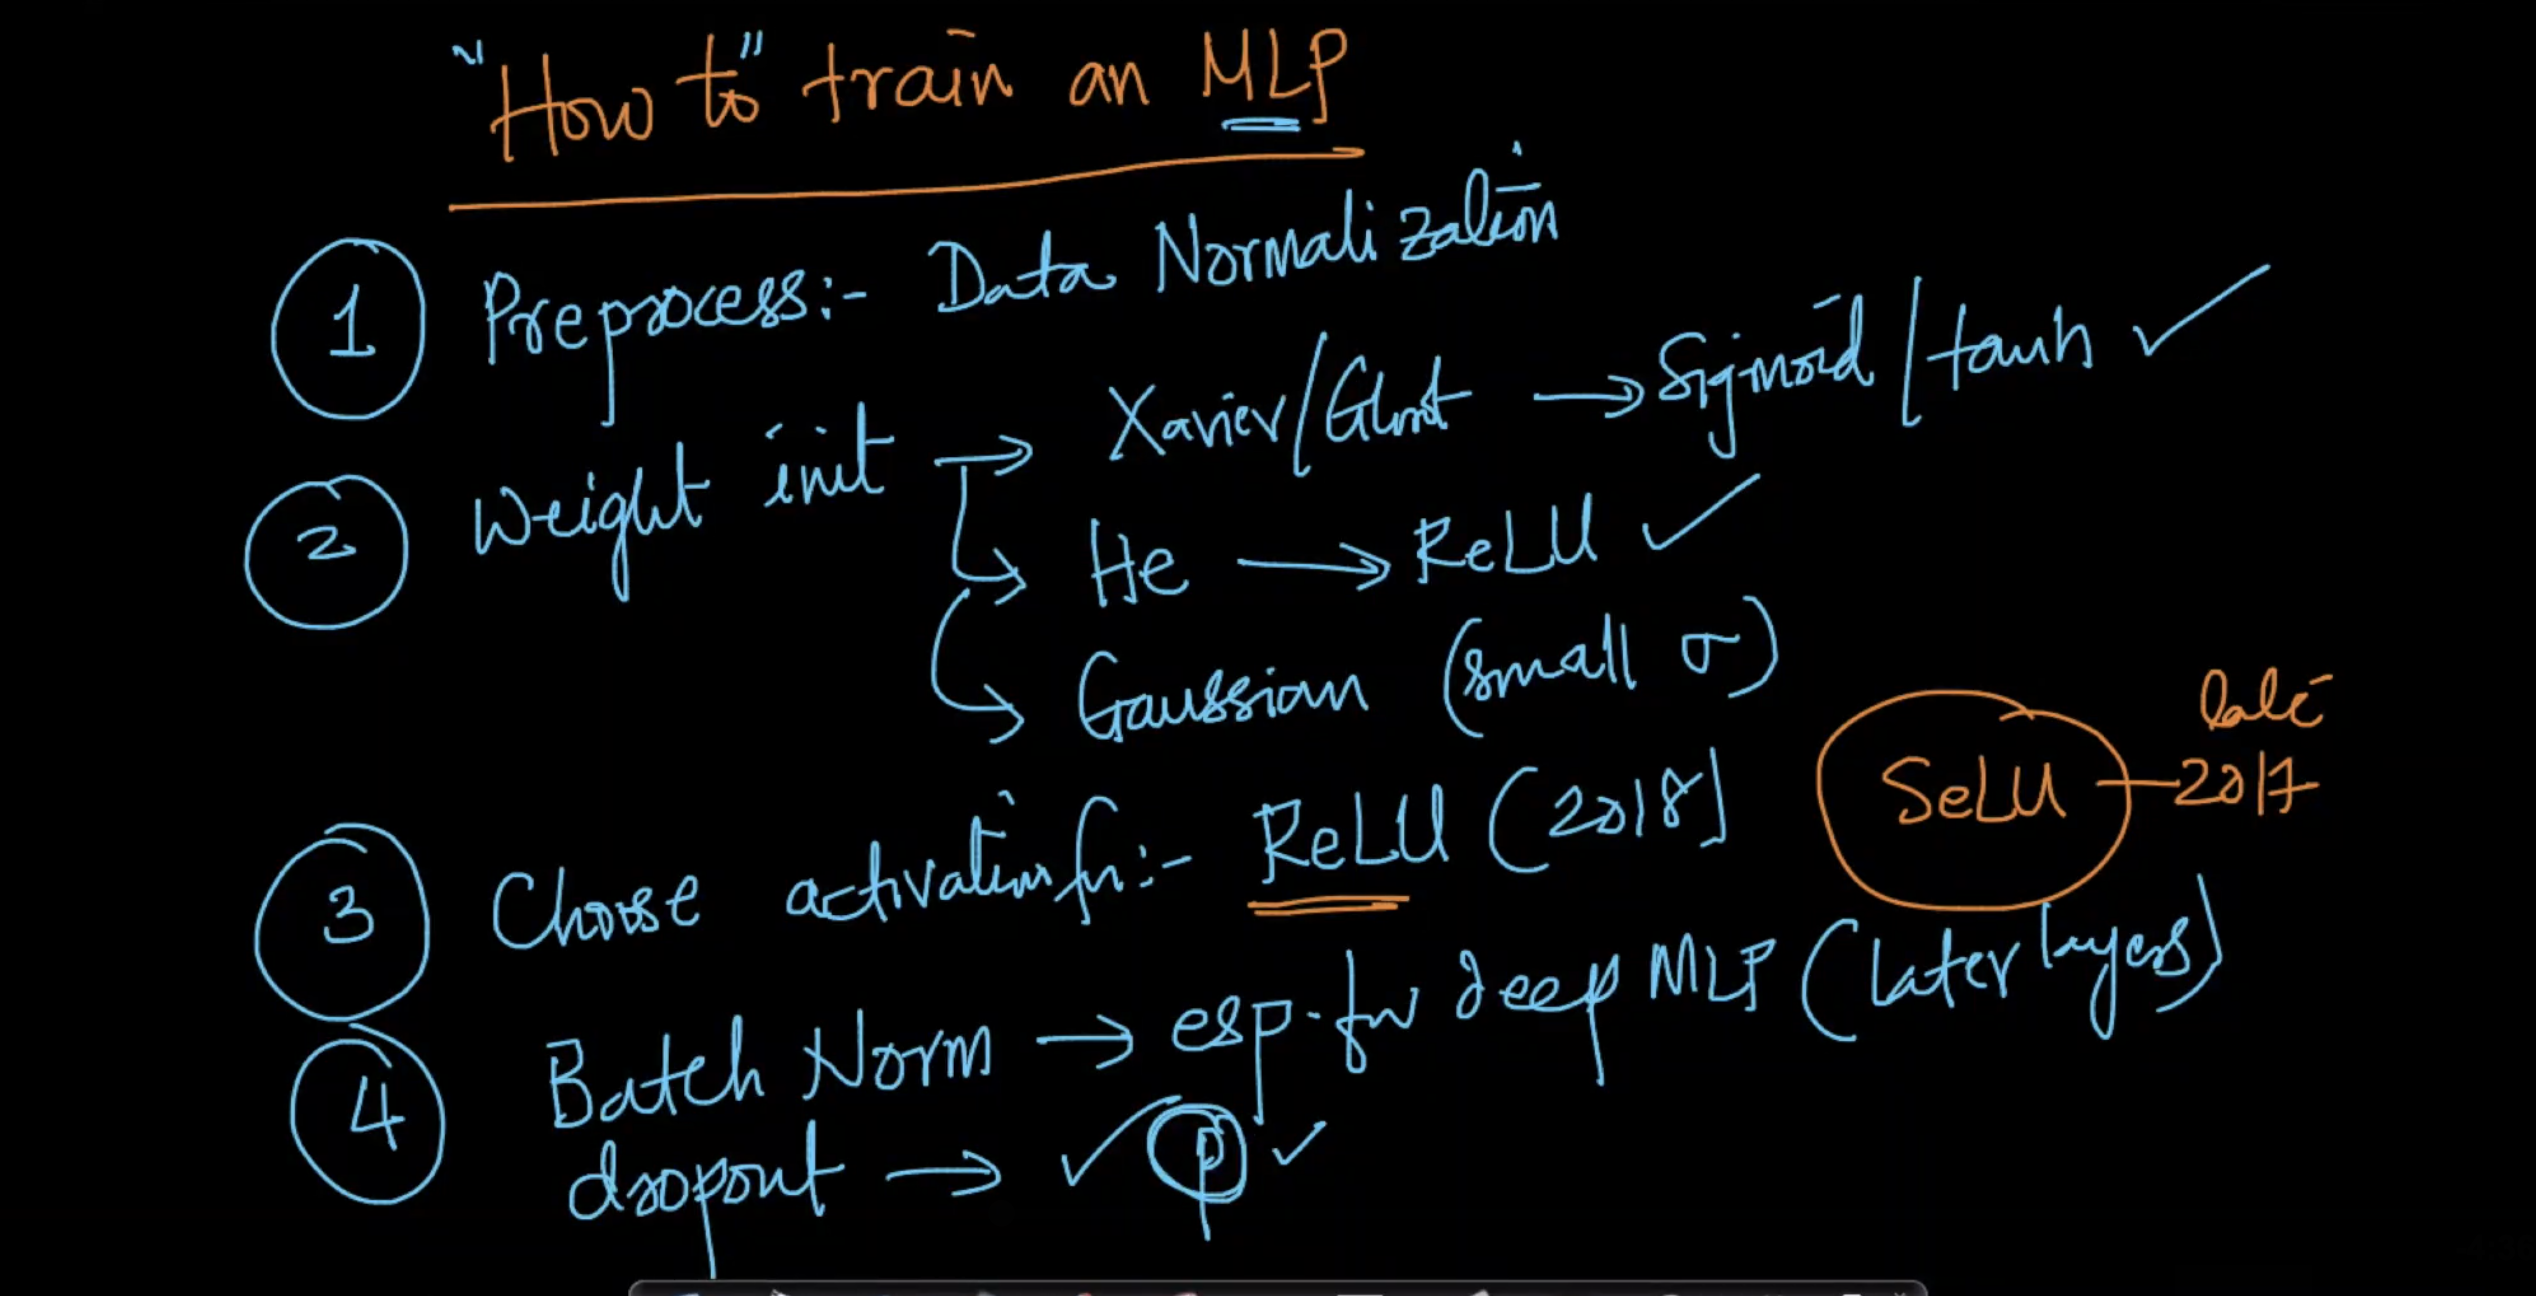 "How to" train an MLP
1 Preprocess:- Data Normalization
2 Weight init → Xavier/Glorot → Sigmoid/tanh ✓
He → ReLU ✓
Gaussian (small σ)
3 Choose activation fn:- ReLU (2018] SeLU - late 2017
4 Batch Norm → esp. for deep MLP (later layers)
dropout → ✓ p ✓